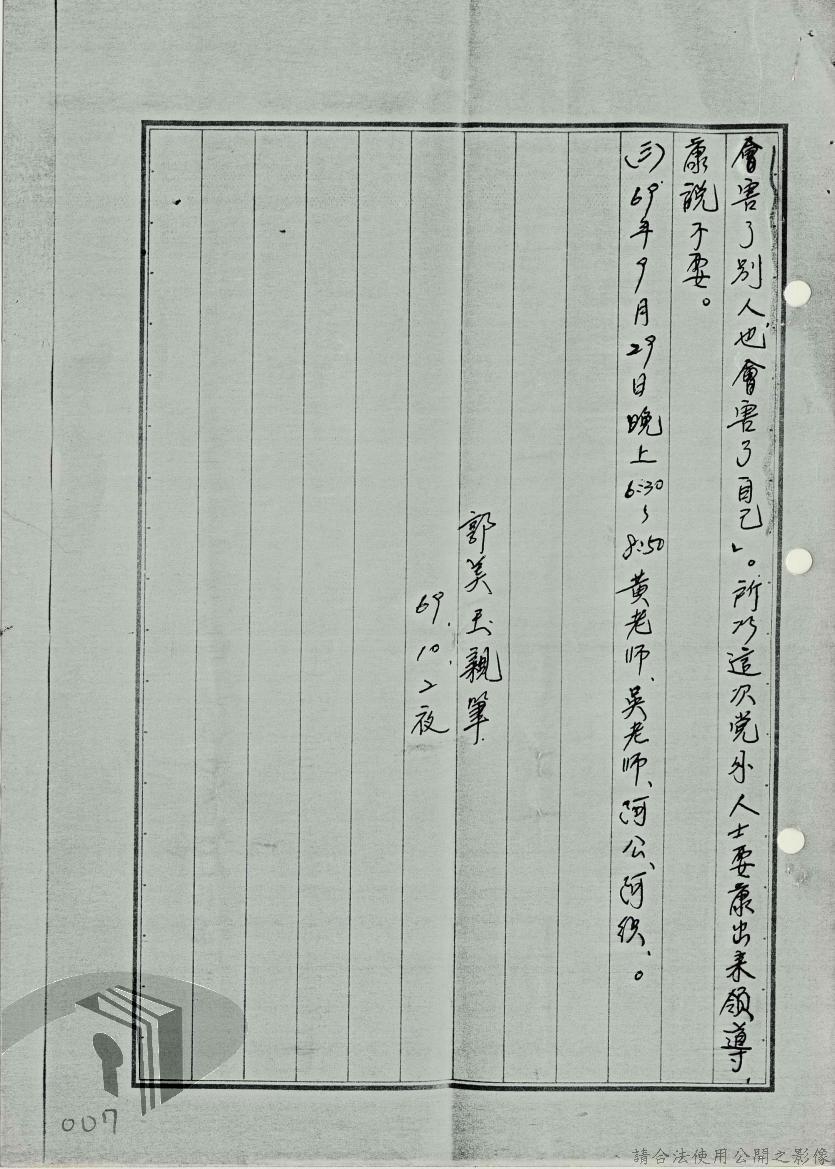 會害了別人也會害了自己」。所以這次党外人士要康出来領導,
康說不要。
(三)69年9月29日晚上6:30~8:50黃老师、吳老师、阿公、阿欽、。
郭美玉親筆.
69.10.2夜
007
請合法使用公開之影像